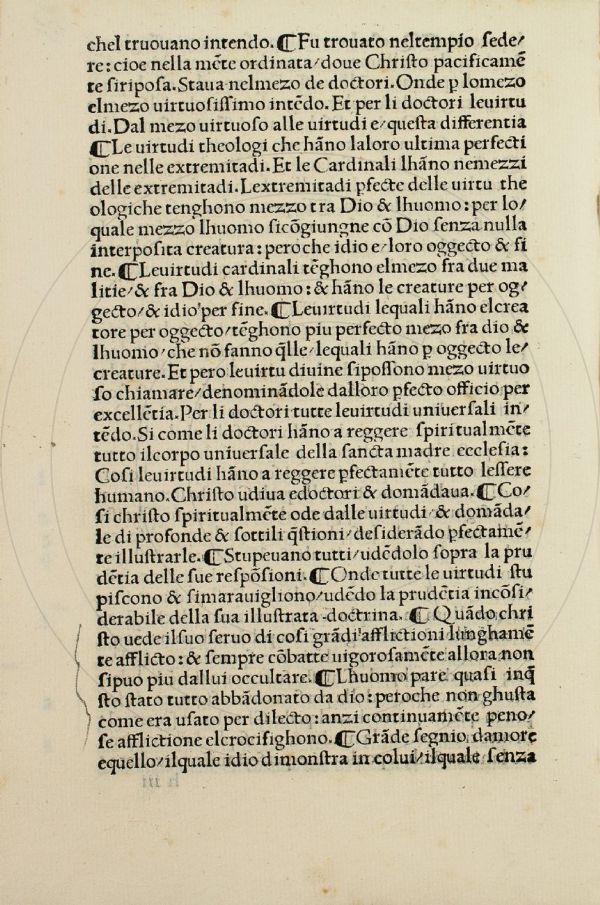 chel truouano intendo. ¶ Fu trouato neltempio sede/
re: cioe nella mēte ordinata/doue Christo pacificamē
te siriposa. Staua nelmezo de doctori. Onde p lomezo
elmezo uirtuosissimo intēdo. Et per li doctori leuirtu
di. Dal mezo uirtuoso alle uirtudi e/questa differentia
¶ Le uirtudi theologi che hāno laloro ultima perfecti
one nelle extremitadi. Et le Cardinali lhāno nemezzi
delle extremitadi. Lextremitadi pfecte delle uirtu the
ologiche tenghono mezzo tra Dio & lhuomo: per lo/
quale mezzo lhuomo sicōgiungne cō Dio senza nulla
interposita creatura: peroche idio e/loro oggecto & fi
ne. ¶ Leuirtudi cardinali tēghono elmezo fra due ma
litie/& fra Dio & lhuomo: & hāno le creature per og/
gecto/& idio per fine. ¶ Leuirtudi lequali hāno elcrea
tore per oggecto/tēghono piu perfecto mezo fra dio &
lhuomo/che nō fanno q̄lle/lequali hāno p oggecto le/
creature. Et pero leuirtu diuine sipossono mezo uirtuo
so chiamare/denominādole dalloro pfecto officio per
excellētia. Per li doctori tutte leuirtudi uniuersali in/
tēdo. Si come li doctori hāno a reggere spiritualmēte
tutto ilcorpo uniuersale della sancta madre ecclesia:
Cosi leuirtudi hāno a reggere pfectamēte tutto lessere
humano. Christo udiua edoctori & domādaua. ¶ Co/
si christo spiritualmēte ode dalle uirtudi/& domāda/
le di profonde & sottili q̄stioni/desiderādo pfectamē/
te illustrarle. ¶ Stupeuano tutti/udēdolo sopra la pru
dētia delle sue respōsioni. ¶ Onde tutte le uirtudi stu
piscono & simarauigliono/udēdo la prudētia incōsi/
derabile della sua illustrata doctrina. ¶ Quādo chri
sto uede ilsuo seruo di cosi grādi afflictioni lunghamē
te afflicto: & sempre cōbatte uigorosamēte allora non
sipuo piu dallui occultare. ¶ Lhuomo pare quasi inq̄
sto stato tutto abbādonato da dio: peroche non ghusta
come era usato per dilecto: anzi continuamēte peno/
se afflictione elcrocifighono. ¶ Grāde segnio damore
equello/ilquale idio dimonstra in colui/ilquale senza
h iii